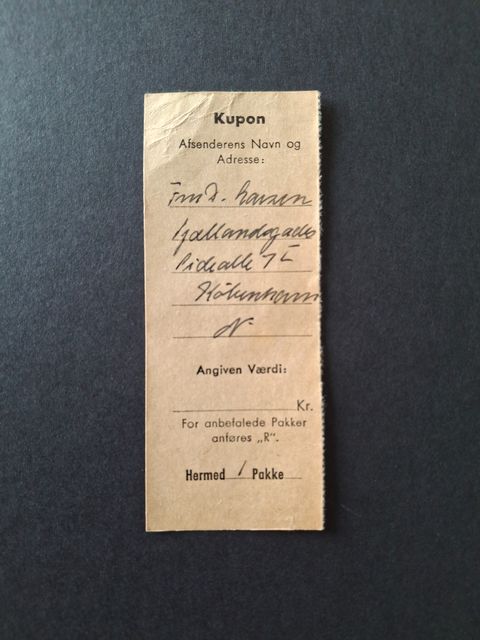 Kupon
Afsenderens Navn og
Adresse:
Larsen
Sidealle 7
København
N
Angiven Værdi:
Kr.
For anbefalede Pakker
anføres „R".
Hermed 1 Pakke